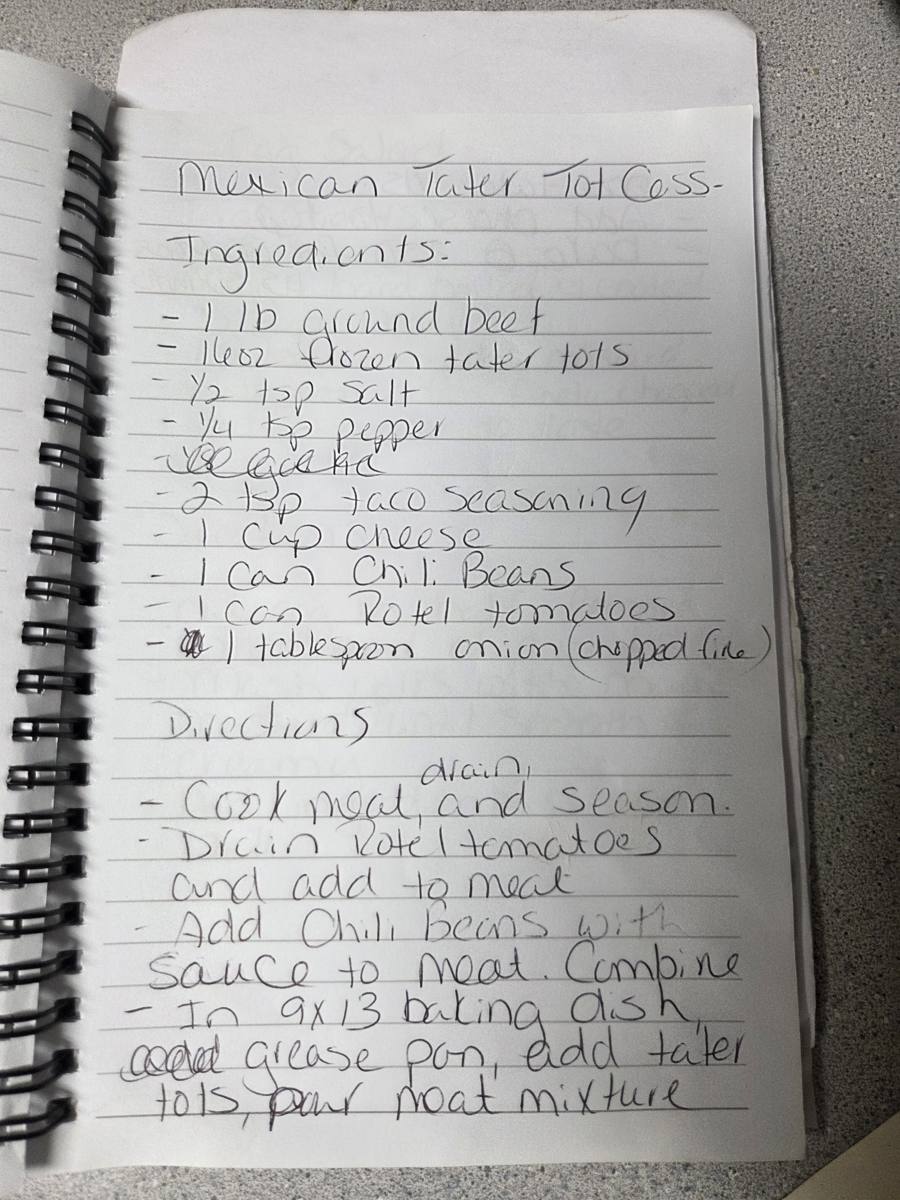 Mexican Tater Tot Cass-
Ingredients:
- 1 lb ground beef
- 16oz frozen tater tots
- 1/2 tsp salt
- 1/4 tsp pepper
- 2 tsp taco seasoning
- 1 cup cheese
- 1 can Chili Beans
- 1 can Rotel tomatoes
- 1 tablespoon onion (chopped fine)
Directions
drain,
- Cook meat, and season.
- Drain Rotel tomatoes
and add to meat
- Add Chili Beans with
sauce to meat. Combine
- In 9x13 baking dish,
grease pan, add tater
tots, pour meat mixture